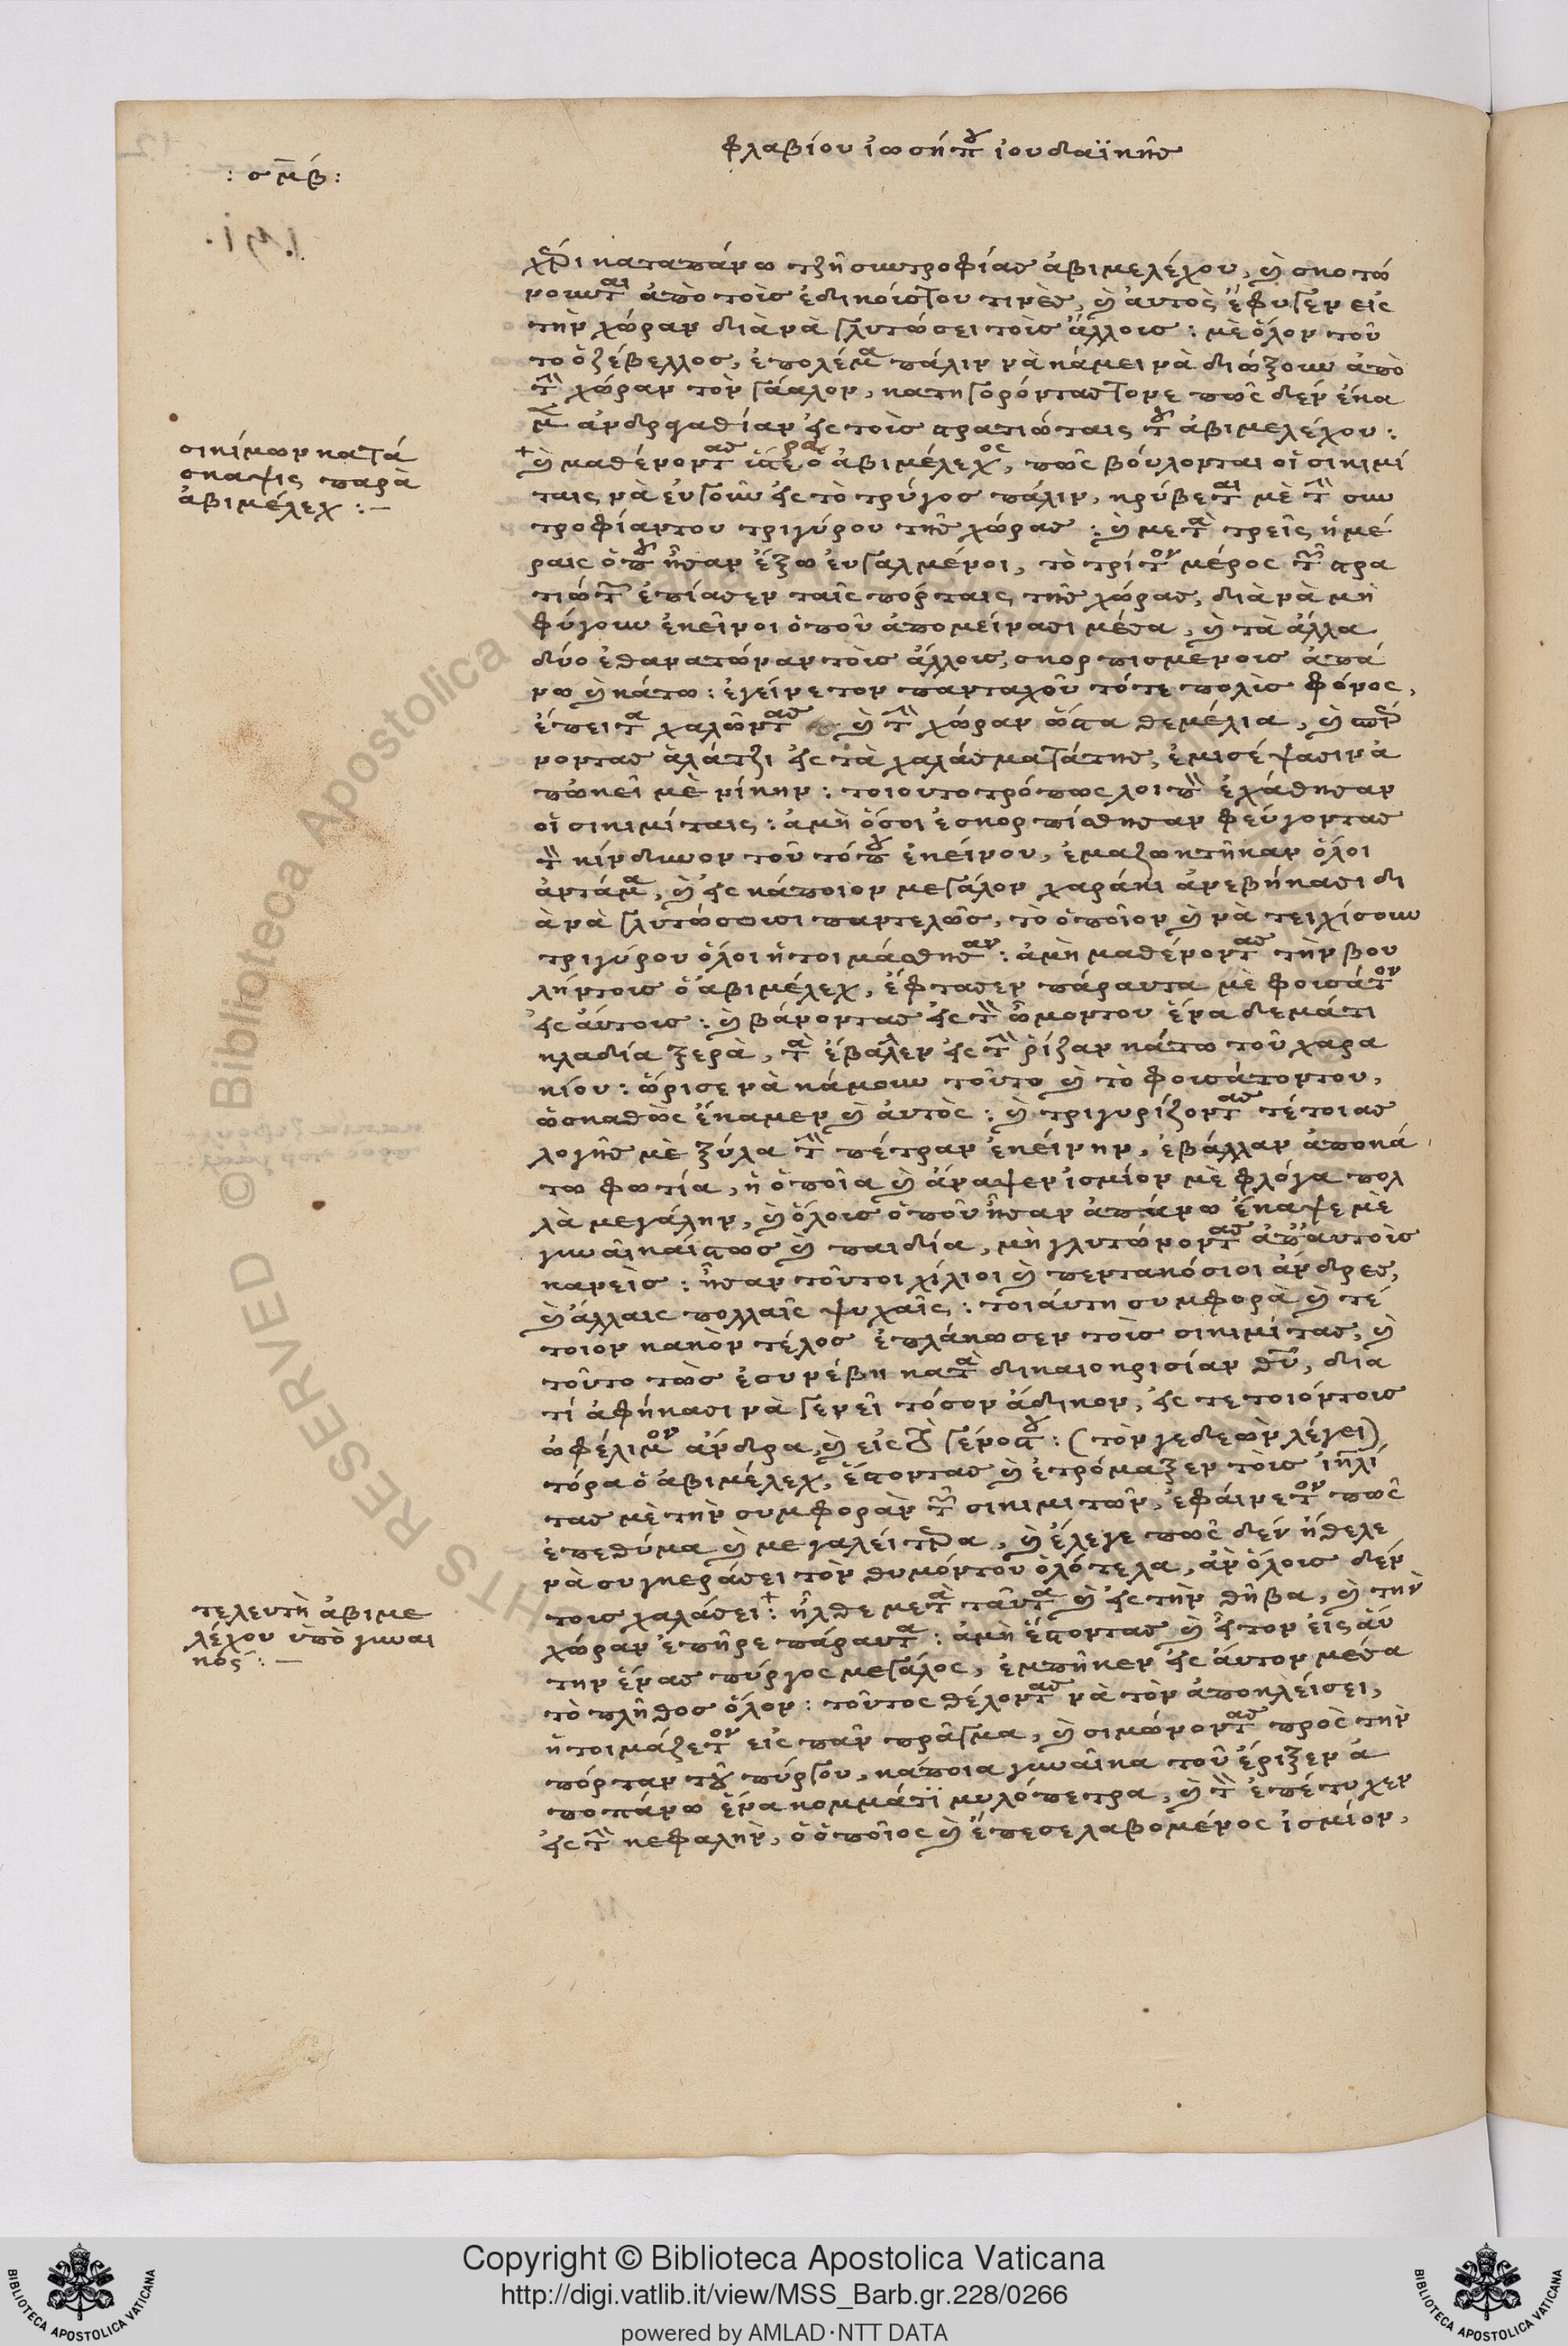 φλαβίου ἰωσήπου ἰουδαϊκῆς
: σμβ :
χέρι καταπάνω τζῆ συντροφίας ἀβιμελέχου, καὶ σκοτώ
νουνται ἀπὸ τοὺς ἐδικούς του τινὲς, καὶ αὐτὸς ἔφυγεν εἰς
τὴν χώραν διὰ νὰ γλυτώσει τοὺς ἄλλους : μὲ ὅλον τοῦ
το ὁ ζέβελλος, ἐπολέμα πάλιν νὰ κάμει νὰ διώξουν ἀπὸ
τὴν χώραν τὸν γάαλον, κατηγορόντας τονε πῶς δὲν ἔκα
μεν ἀνδραγαθίαν εἰς τοὺς στρατιώταις τοῦ ἀβιμελέχου :
σικίμων κατά
σκαψις παρὰ
ἀβιμέλεχ : –
+ καὶ μαθένοντας ὕστερα ὁ ἀβιμέλεχος, πῶς βούλονται οἱ σικιμί
ταις νὰ εὐγοῦν εἰς τὸ τρύγος πάλιν, κρύβεται μὲ τὴν συν
τροφίαν του τριγύρου τῆς χώρας : καὶ μετὰ τρεῖς ἡμέ
ραις ὁποῦ ἦσαν ἔξω εὐγαλμένοι, τὸ τρίτον μέρος τῶν στρα
τιωτῶν ἐπίασεν ταῖς πόρταις τῆς χώρας, διὰ νὰ μὴ
φύγουν ἐκεῖνοι ὁποῦ ἀπομείνασι μέσα, καὶ τὰ ἄλλα
δύο ἐθανατώναν τοὺς ἄλλους, σκορπισμένους ἀπά
νω καὶ κάτω : ἐγείνετον πανταχοῦ τότε πολὺς φόνος,
ἔπειτα χαλῶντας καὶ τὴν χώραν ὥστα θεμέλια, καὶ σπέρ
νοντας ἁλάτζι εἰς τὰ χαλάσματά της, ἐμισέψασιν ἀ
πῶκεῖ μὲ νίκην : τοιουτοτρόπως λοιπὸν ἐχάθησαν
οἱ σικιμίταις : ἀμὴ ὅσοι ἐσκορπίσθησαν φεύγοντας
τὸν κίνδυνον τοῦ τόπου ἐκείνου, ἐμαζωκτῆκαν ὅλοι
ἀντάμα, καὶ εἰς κάποιον μεγάλον χαράκι ἀνεβήκασι δι
ὰ νὰ γλυτώσωσι παντελῶς, τὸ ὁποῖον καὶ νὰ τειχίσουν
τριγύρου ὅλοι ἡτοιμάσθησαν : ἀμὴ μαθένοντας τὴν βου
λήν τους ὁ ἀβιμέλεχ, ἔφτασεν πάραυτα μὲ φουσάτον
εἰς αὐτους : καὶ βάνοντας εἰς τὸν ὦμον του ἕνα δεμάτι
κλαδία ξερὰ, τὰ ἔβαλεν εἰς τὴν ῥίζαν κάτω τοῦ χαρα
κίου : ὥρισε νὰ κάμουν τοῦτο καὶ τὸ φουσάτον του,
ὡσκαθὼς ἔκαμεν καὶ αὐτὸς : καὶ τριγυρίζοντας τέτοιας
λογῆς μὲ ξύλα τὴν πέτραν ἐκείνην, ἐβάλλαν ἀποκά
τω φωτία, ἡ ὁποῖα καὶ ἄναψεν ἰσμίον μὲ φλόγα πολ
λὰ μεγάλην, καὶ ὅλους ὁποῦ ἦσαν ἀπάνω ἔκαψε μὲ
γυναῖκαίς τους καὶ παιδία, μὴ γλυτώνοντας ἀπ' αὐτοὺς
κανεὶς : ἦσαν τοῦτοι χίλιοι καὶ πεντακόσιοι ἄνδρες,
καὶ ἄλλαις πολλαῖς ψυχαῖς : τοιάυτη συμφορὰ καὶ τέ
τοιον κακὸν τέλος ἐπλάκωσεν τοὺς σικιμίτας, καὶ
τοῦτο τὼς ἐσυνέβη κατὰ δικαιοκρισίαν θεοῦ, δια
τί ἀφήκασι νὰ γενεῖ τόσον ἄδικον, εἰς τετοιόν τους
ὠφέλιμον ἄνδρα, καὶ εἰς τὸ γένος του : (τὸν γεδεὼν λέγει)
τόρα ὁ ἀβιμέλεχ, ἔστοντας καὶ ἐτρόμαξεν τοὺς ἰσραηλί
τας μὲ τὴν συμφορὰν τῶν σικιμιτῶν, ἐφάινετον πῶς
ἐπεθύμα καὶ μεγαλείτερα, καὶ ἔλεγε πῶς δὲν ἤθελε
νὰ συγκεράσει τὸν θυμόν του ὁλότελα, ἂν ὅλους δὲν
τους χαλάσει : + ἦλθε μετὰ ταῦτα καὶ εἰς τὴν θῆβα, καὶ τὴν
τελευτὴ ἀβιμε
λέχου ὑπὸ γυναι
κός : –
χώραν ἐπῆρε πάραυτα : ἀμὴ ἔστοντας καὶ ἦτον εἰς αὐ
την ἕνας πύργος μεγάλος, ἐμπῆκεν εἰς αὐτον μέσα
τὸ πλῆθος ὅλον : τοῦτος θέλοντας νὰ τὸν ἀποκλείσει,
ἡτοιμάζετον εἰς πᾶν πρᾶγμα, καὶ σιμώνοντας πρὸς τὴν
πόρταν τοῦ πύργου, κάποια γυναῖκα τοῦ ἔριξεν ἀ
ποπάνω ἕνα κομμάτϊ μυλόπετρα, καὶ τὸν ἐπέτυχεν
εἰς τὴν κεφαλὴν, ὁ ὁποῖος καὶ ἔπεσε λαβομένος ἰσμίον,
Copyright © Biblioteca Apostolica Vaticana
http://digi.vatlib.it/view/MSS_Barb.gr.228/0266
powered by AMLAD·NTT DATA